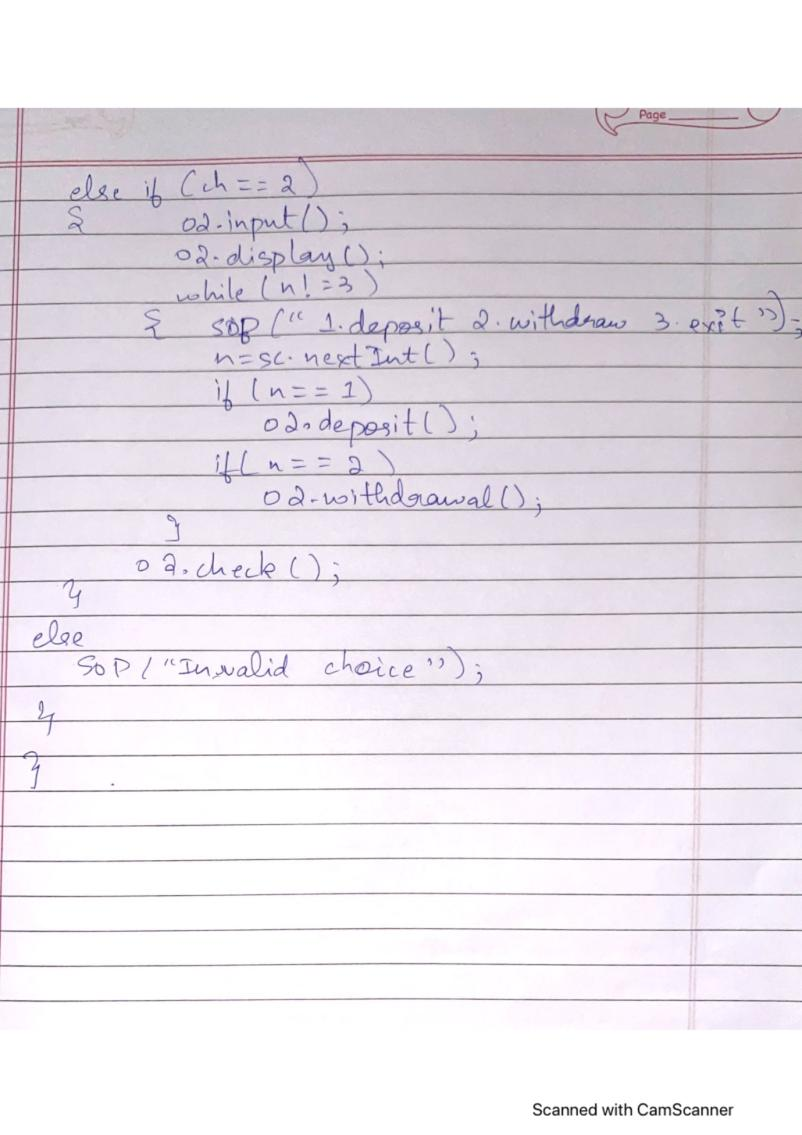 Page
else if (ch == 2)
{ o2.input();
o2.display();
while (n! = 3)
{ SOP (" 1. deposit 2. withdraw 3. exit ");
n=sc.nextInt();
if (n == 1)
o2.deposit();
if( n == 2)
o2.withdrawal();
}
o2.check();
}
else
SOP ("Invalid choice");
}
}
Scanned with CamScanner